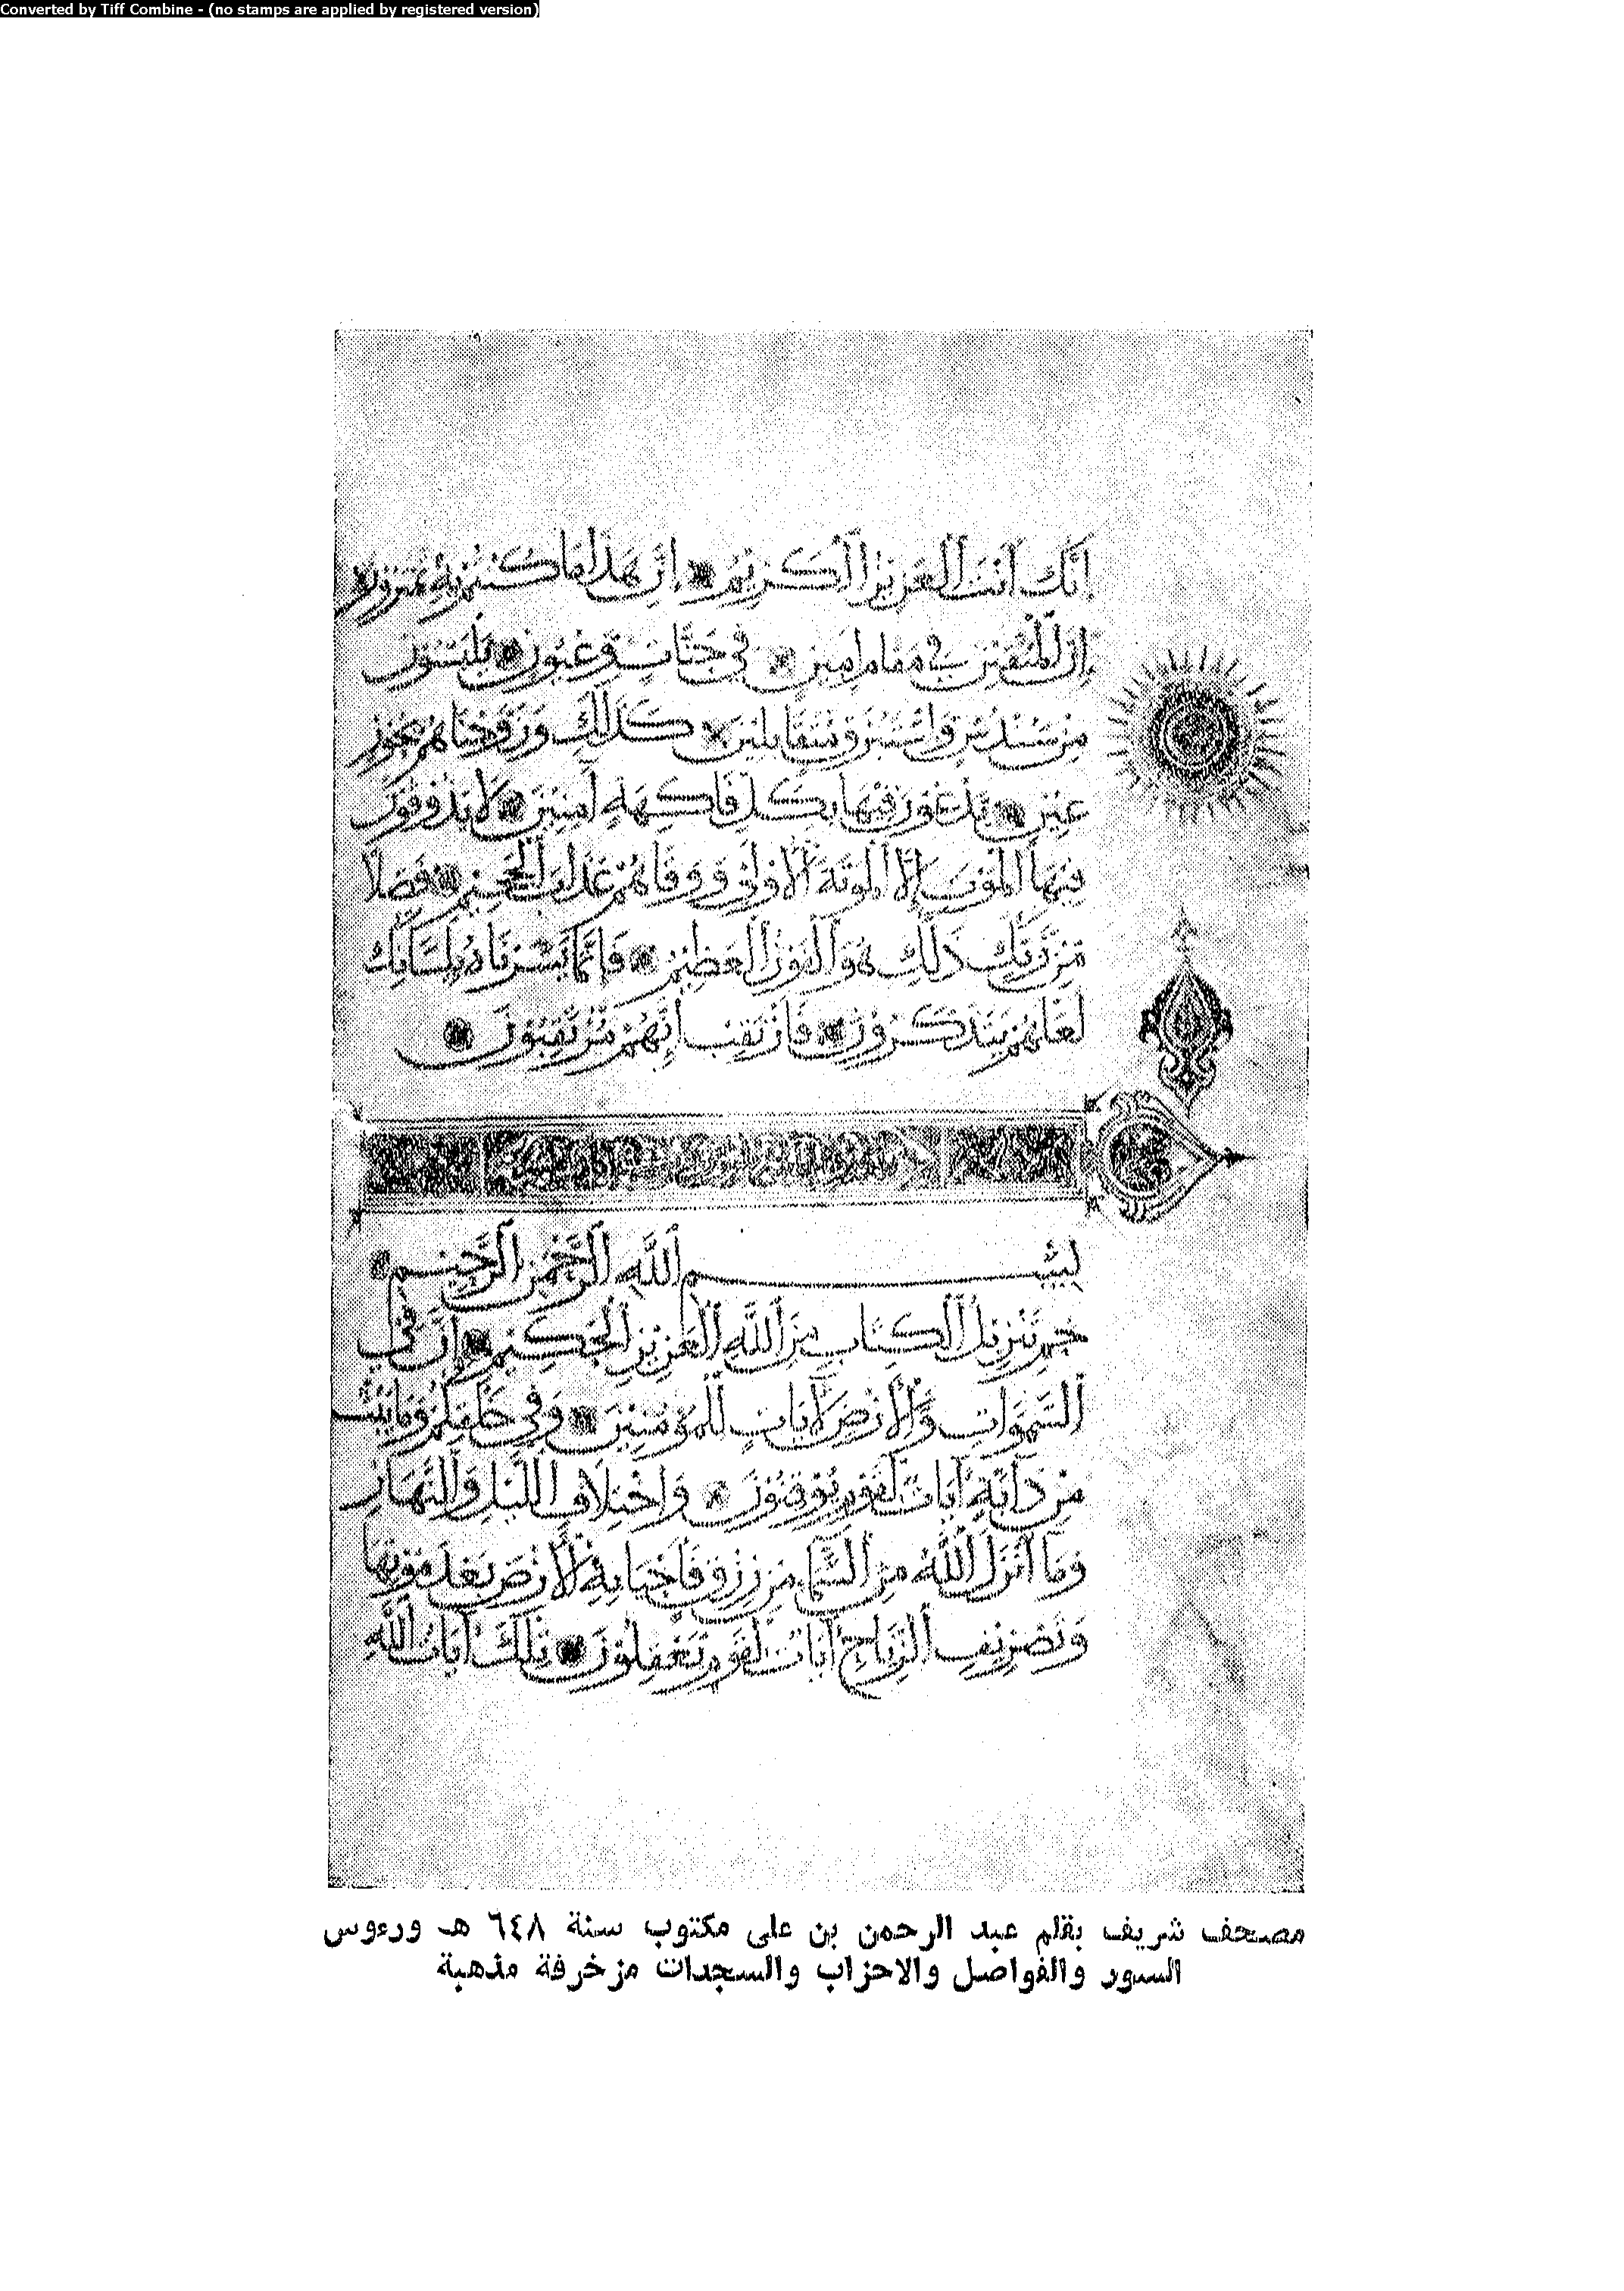 Converted by Tiff Combine - (no stamps are applied by registered version)
إنك أنت العزيز الكريم إن هذا ما كنتم به تمترون
إن المتقين في مقام أمين في جنات وعيون يلبسون
من سندس وإستبرق متقابلين كذلك وزوجناهم بحور
عين يدعون فيها بكل فاكهة آمنين لا يذوقون
فيها الموت إلا الموتة الأولى ووقاهم عذاب الجحيم فضلا
من ربك ذلك هو الفوز العظيم فإنما يسرناه بلسانك
لعلهم يتذكرون فارتقب إنهم مرتقبون
بسم الله الرحمن الرحيم
حم تنزيل الكتاب من الله العزيز الحكيم إن في
السموات والأرض لآيات للمؤمنين وفي خلقكم وما يبث
من دابة آيات لقوم يوقنون واختلاف الليل والنهار
وما أنزل الله من السماء من رزق فأحيا به الأرض بعد موتها
وتصريف الرياح آيات لقوم يعقلون تلك آيات الله
مصحف شريف بقلم عبد الرحمن بن على مكتوب سنة ٦٤٨ هـ ورءوس
السور والفواصل والاحزاب والسجدات مزخرفة مذهبة